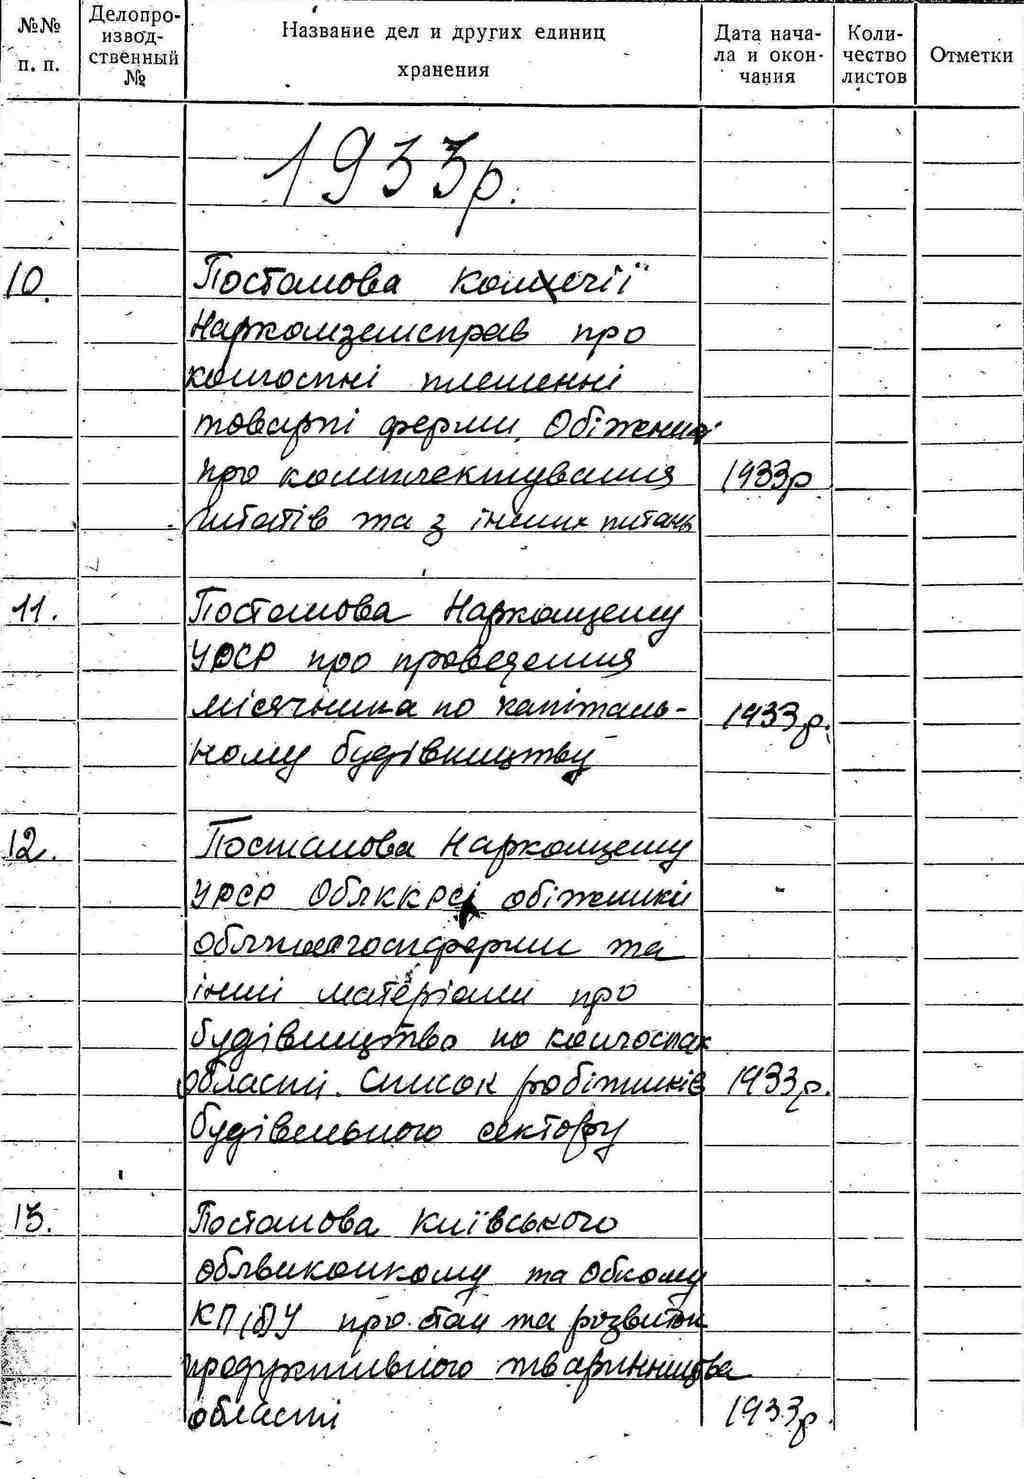 №№ п. п.
Делопро-
извод-
ственный
№
Название дел и других единиц
хранения
Дата нача-
ла и окон-
чания
Коли-
чество
листов
Отметки
1933р.
10.
Постанова Колегії
Наркомземсправ про
колгоспні племенні
товарні ферми. Обіжники
про комплектування
штатів та з інших питань
1933р
11.
Постанова Наркомзему
УРСР про проведення
місячника по капіталь-
ному будівництву
1933р.
12.
Постанова Наркомзему
УРСР ОблККРСІ обіжники
та
інші матеріали про
будівництво по колгоспах
області. Список робітників
будівельного сектору
1933р.
13.
Постанова Київського
облвиконкому та Обкому
КП(б)У про стан та розвиток
продуктивного тваринництва
області
1933р.